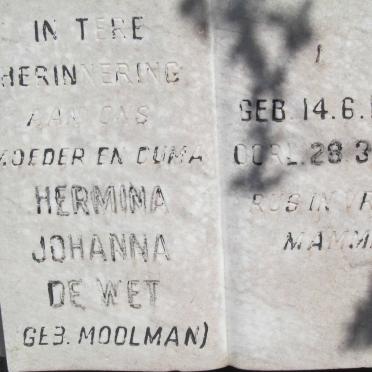 IN TERE
HERINNERING
AAN ONS
MOEDER EN OUMA
HERMINA
JOHANNA
DE WET
(GEB. MOOLMAN)
GEB. 14.6.
OORL. 28.3
RUS IN VR
MAMM